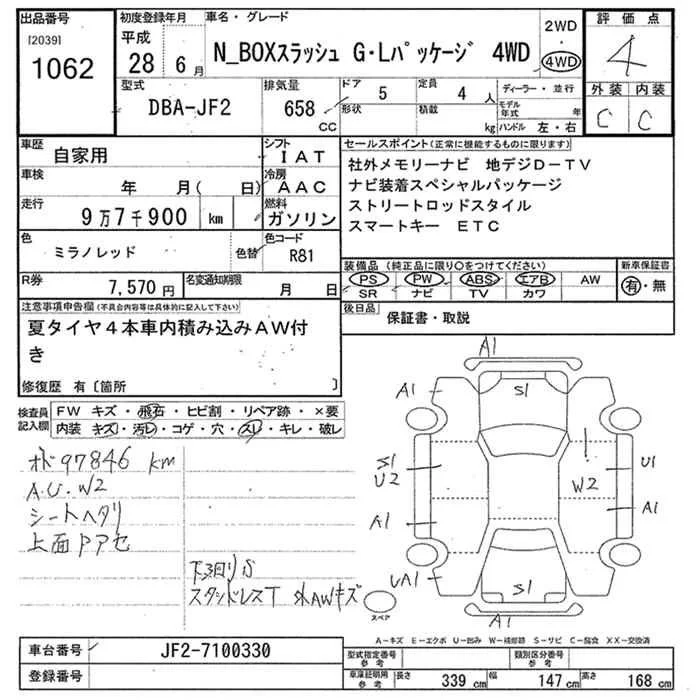 出品番号
[2039]
1062
初度登録年月
平成
28年6月
車名・グレード
N_BOXスラッシュ G・Lパッケージ 4WD
2WD
4WD
評価点
4
外装 内装
C C
型式
DBA-JF2
排気量
658 CC
ドア 5
形状
定員 4人
積載 kg
ディーラー・並行
モデル年式 年
ハンドル 左・右
車歴
自家用
シフト
IAT
車検
年 月( 日)
冷房
AAC
走行
9万7千900 km
燃料
ガソリン
色
ミラノレッド
色替
色コード
R81
R券
7,570円
名変通知期限
月 日
セールスポイント(正常に機能するものに限ります)
社外メモリーナビ 地デジD-TV
ナビ装着スペシャルパッケージ
ストリートロッドスタイル
スマートキー ETC
装備品(純正品に限り○をつけてください)
PS PW ABS エアB AW
SR ナビ TV カワ
新車保証書
有・無
後日品
保証書・取説
注意事項申告欄(不具合内容等は具体的に記入して下さい)
夏タイヤ4本車内積み込みAW付
き
修復歴 有〔箇所 〕
検査員
記入欄
FW キズ・飛石・ヒビ割・リペア跡・×要
内装 キズ・汚レ・コゲ・穴・スレ・キレ・破レ
97846 km
A.U.W2
シートヘタリ
上面Pアセ
下廻りS
スタッドレスT 外AWキズ
A1
A1
S1
A1
S1
U2
W2
U1
A1
A1
UA1
S1
A1
スペア
A-キズ E-エクボ U-凹み W-補修跡 S-サビ C-腐食 XX-交換済
車台番号
JF2-7100330
登録番号
型式指定番号
参考
類別区分番号
参考
車庫証明用
参考
長さ 339cm 幅 147cm 高さ 168cm